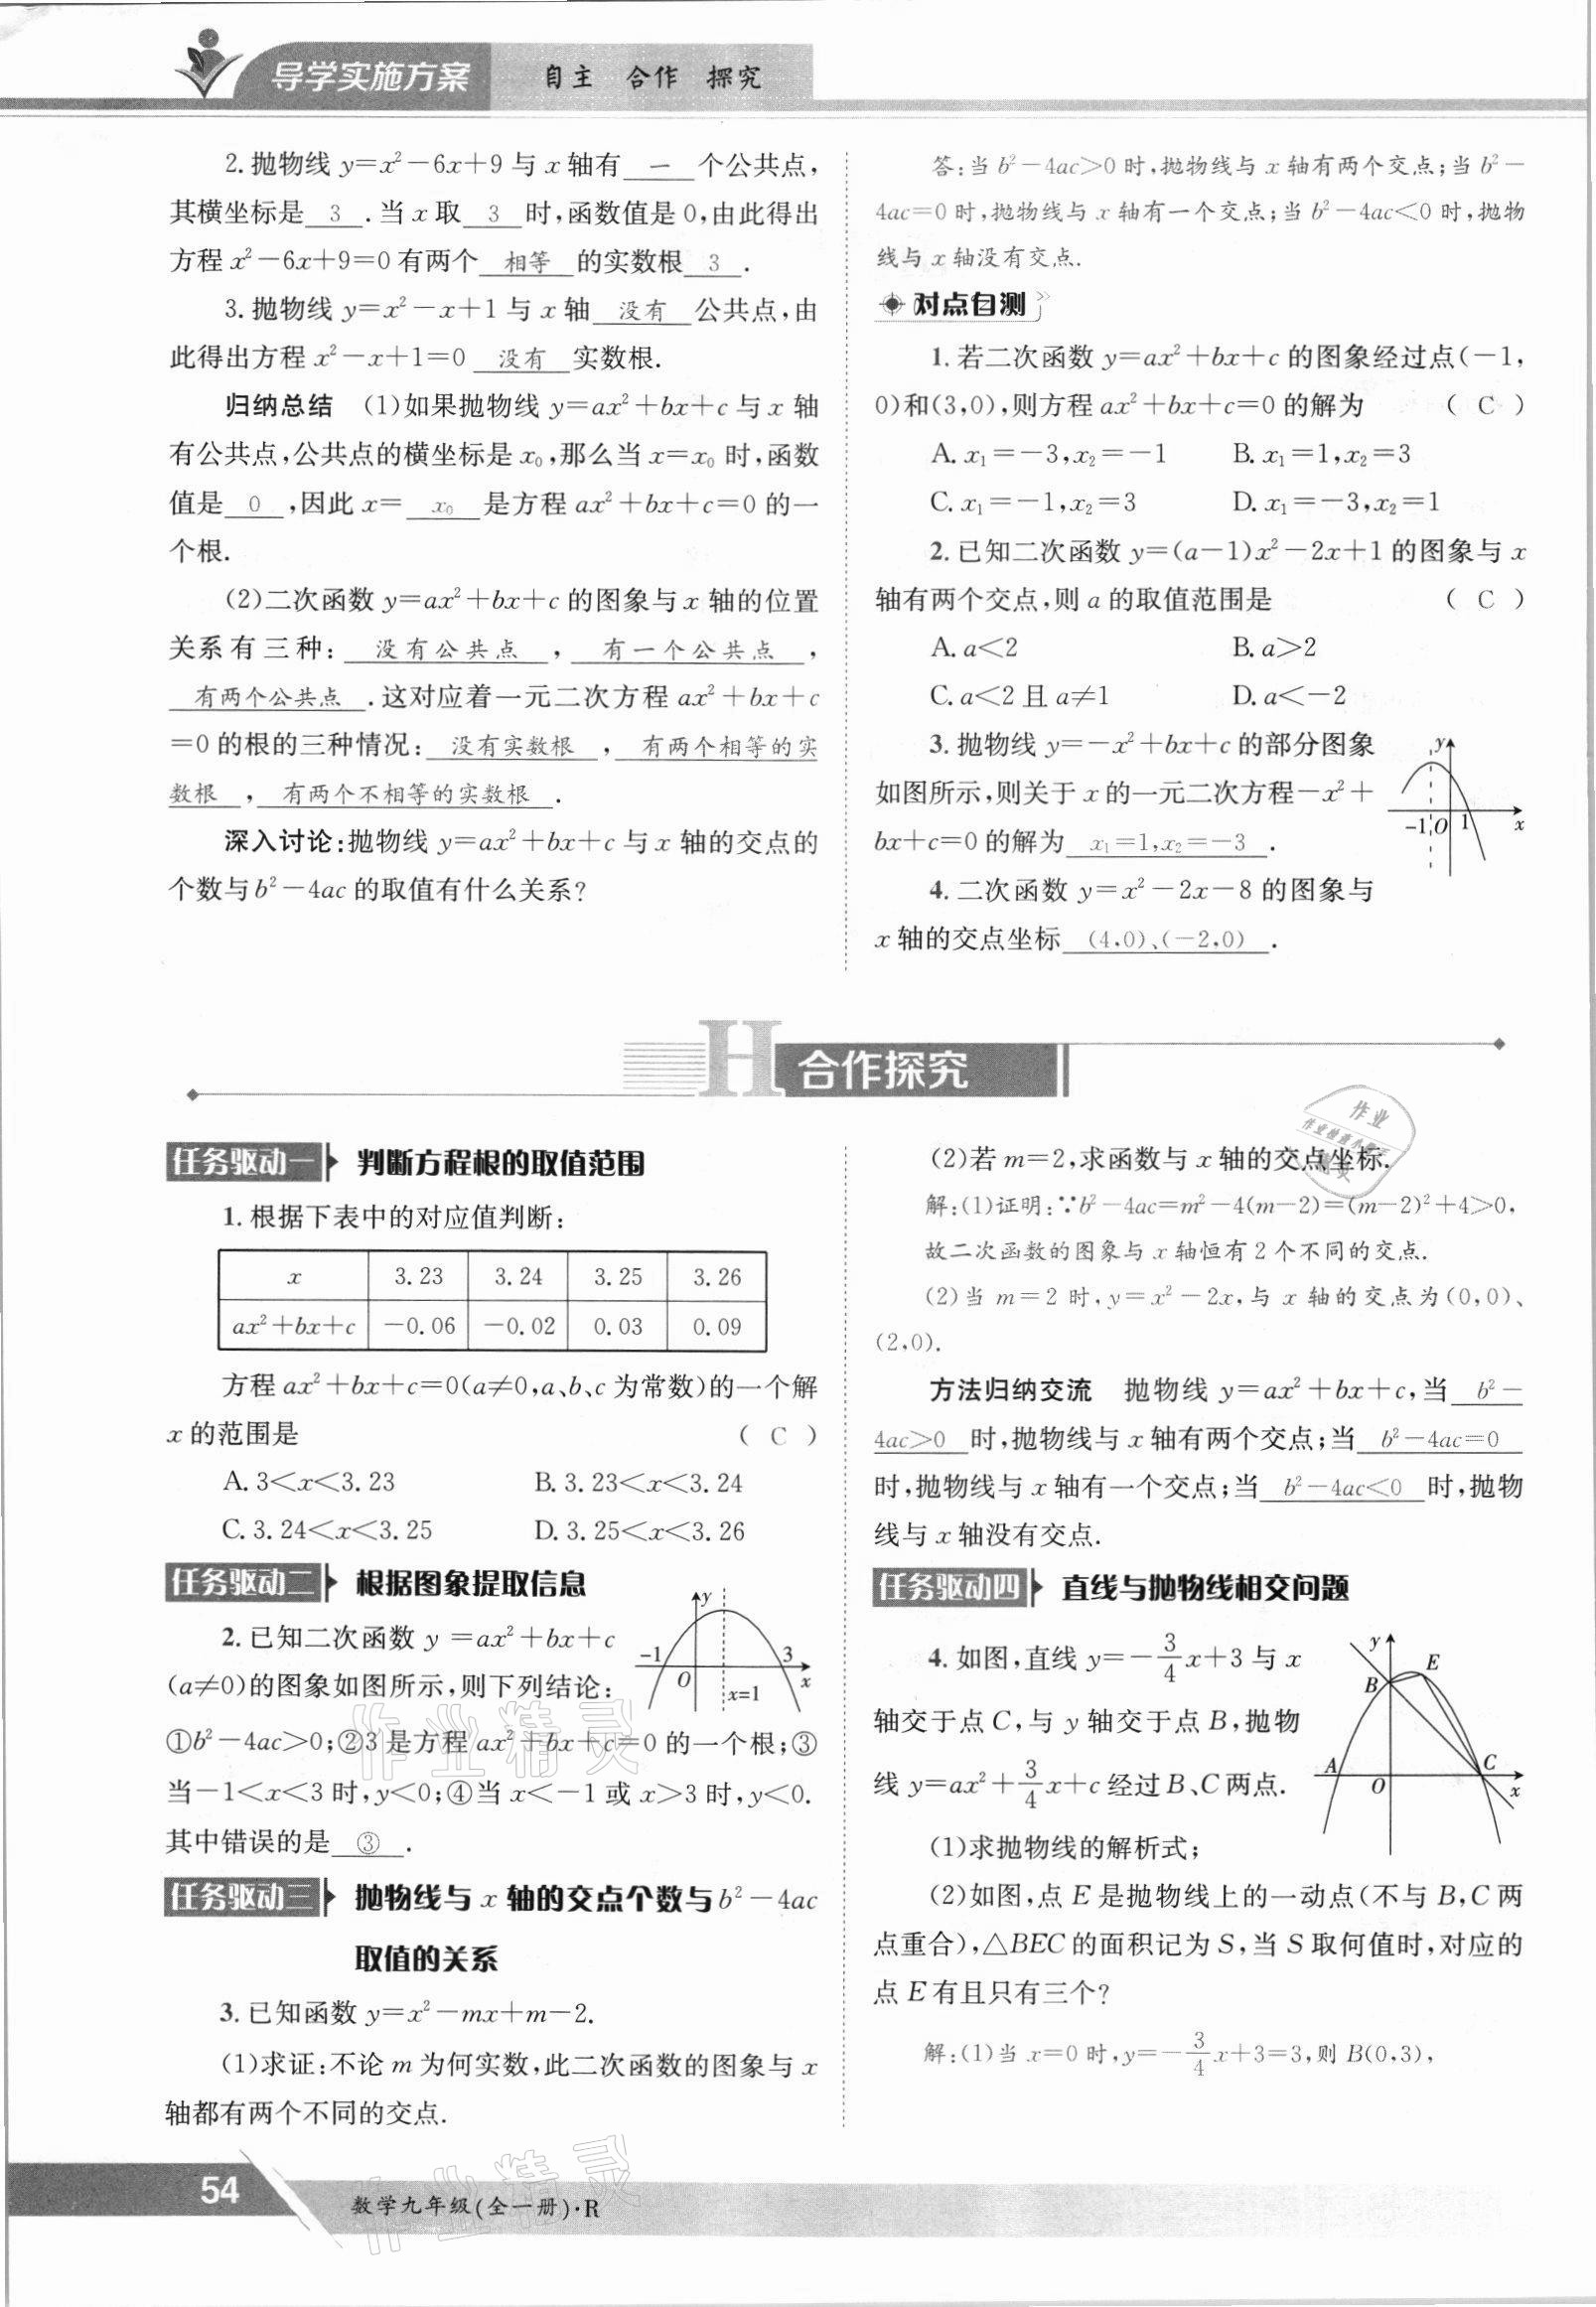 导学实施方案
自主 合作 探究
2.抛物线 y=x²-6x+9 与 x 轴有 一 个公共点,
其横坐标是 3 .当 x 取 3 时,函数值是0,由此得出
方程 x²-6x+9=0 有两个 相等 的实数根 3 .
3.抛物线 y=x²-x+1 与 x 轴 没有 公共点,由
此得出方程 x²-x+1=0 没有 实数根.
归纳总结 (1)如果抛物线 y=ax²+bx+c 与 x 轴
有公共点,公共点的横坐标是 x₀,那么当 x=x₀ 时,函数
值是 0 ,因此 x= x₀ 是方程 ax²+bx+c=0 的一
个根.
(2)二次函数 y=ax²+bx+c 的图象与 x 轴的位置
关系有三种: 没有公共点 , 有一个公共点 ,
有两个公共点 .这对应着一元二次方程 ax²+bx+c
=0 的根的三种情况: 没有实数根 , 有两个相等的实
数根 , 有两个不相等的实数根 .
深入讨论:抛物线 y=ax²+bx+c 与 x 轴的交点的
个数与 b²-4ac 的取值有什么关系?
答:当 b²-4ac>0 时,抛物线与 x 轴有两个交点;当 b²-
4ac=0 时,抛物线与 x 轴有一个交点;当 b²-4ac<0 时,抛物
线与 x 轴没有交点.
对点自测
1.若二次函数 y=ax²+bx+c 的图象经过点(-1,
0)和(3,0),则方程 ax²+bx+c=0 的解为 ( C )
A. x₁=-3,x₂=-1 B. x₁=1,x₂=3
C. x₁=-1,x₂=3 D. x₁=-3,x₂=1
2.已知二次函数 y=(a-1)x²-2x+1 的图象与 x
轴有两个交点,则 a 的取值范围是 ( C )
A. a<2 B. a>2
C. a<2 且 a≠1 D. a<-2
3.抛物线 y=-x²+bx+c 的部分图象
如图所示,则关于 x 的一元二次方程-x²+
bx+c=0 的解为 x₁=1,x₂=-3 .
y
-1 O 1 x
4.二次函数 y=x²-2x-8 的图象与
x 轴的交点坐标 (4,0)、(-2,0) .
H 合作探究
任务驱动一 判断方程根的取值范围
1.根据下表中的对应值判断:
x 3.23 3.24 3.25 3.26
ax²+bx+c -0.06 -0.02 0.03 0.09
方程 ax²+bx+c=0(a≠0,a、b、c 为常数)的一个解
x 的范围是 ( C )
A. 3<x<3.23 B. 3.23<x<3.24
C. 3.24<x<3.25 D. 3.25<x<3.26
任务驱动二 根据图象提取信息
2.已知二次函数 y =ax²+bx+c
(a≠0)的图象如图所示,则下列结论:
①b²-4ac>0;②3 是方程 ax²+bx+c=0 的一个根;③
当-1<x<3 时,y<0;④当 x<-1 或 x>3 时,y<0.
其中错误的是 ③ .
y
-1 3
O x=1 x
任务驱动三 抛物线与 x 轴的交点个数与 b²-4ac
取值的关系
3.已知函数 y=x²-mx+m-2.
(1)求证:不论 m 为何实数,此二次函数的图象与 x
轴都有两个不同的交点.
(2)若 m=2,求函数与 x 轴的交点坐标.
解:(1)证明:∵b²-4ac=m²-4(m-2)=(m-2)²+4>0,
故二次函数的图象与 x 轴恒有 2 个不同的交点.
(2)当 m=2 时,y=x²-2x,与 x 轴的交点为(0,0)、
(2,0).
方法归纳交流 抛物线 y=ax²+bx+c,当 b²-
4ac>0 时,抛物线与 x 轴有两个交点;当 b²-4ac=0
时,抛物线与 x 轴有一个交点;当 b²-4ac<0 时,抛物
线与 x 轴没有交点.
任务驱动四 直线与抛物线相交问题
4.如图,直线 y=-3/4x+3 与 x
轴交于点 C,与 y 轴交于点 B,抛物
线 y=ax²+3/4x+c 经过 B、C 两点.
y
B E
A O C x
(1)求抛物线的解析式;
(2)如图,点 E 是抛物线上的一动点(不与 B,C 两
点重合),△BEC 的面积记为 S,当 S 取何值时,对应的
点 E 有且只有三个?
解:(1)当 x=0 时,y=-3/4x+3=3,则 B(0,3),
作业精灵
作业精灵
54
数学九年级(全一册)·R